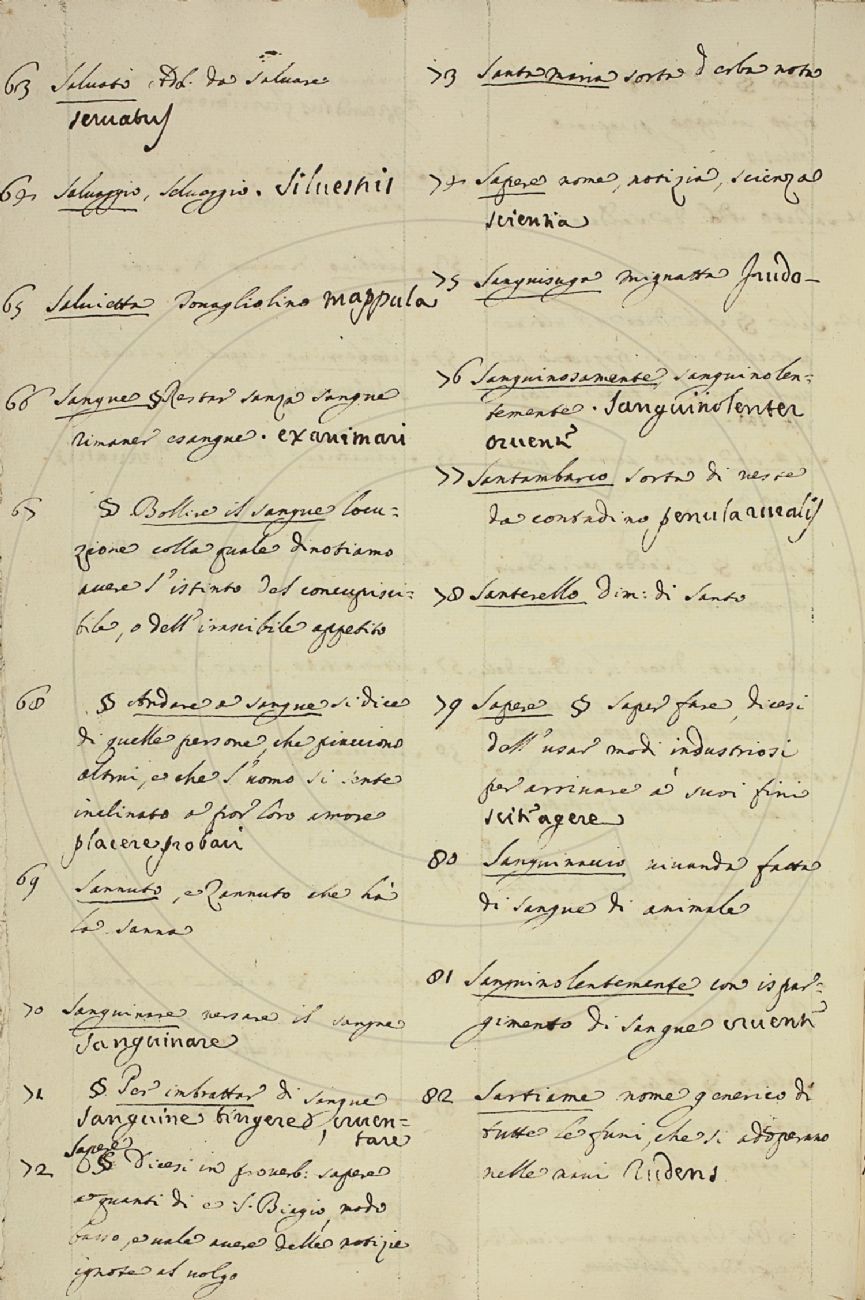 63 Salvato Add. da Salvare
servatus
64 Salvaggio, Selvaggio. Silvestris
65 Salvietta Tovagliolino mappula
66 Sangue § Restar sanza sangue
rimaner esangue. exanimari
67 § Bollire il sangue locu=
zione colla quale dinotiamo
avere l'istinto del concupisci=
bile, o dell'irascibile appetito
68 § Andare a sangue si dice
di quelle persone, che piacciono
altrui, e che l'uomo si sente
inclinato a por loro amore
placere probari
69 Sannuto, e Zannuto che hà
la sanna
70 Sanguinare versare il sangue
Sanguinare
71 § Per imbrattar di sangue
Sanguine tingere, cruen=
tare
Sapere
72 § Dicesi in proverb: sapere
a quanti dì è S. Biagio, modo
basso, e vale avere delle notizie
ignote al volgo
73 Santamaria sorta d'erba nota
74 Sapere nome, notizia, scienza
scientia
75 Sanguisuga mignatta
76 Sanguinosamente, sanguinolen=
temente. Sanguinolenter
cruentè
77 Santambarco sorta di veste
da contadino penula rualis
78 Santerello Dim: di Santo
79 Sapere § Saper fare, dicesi
dell'usar modi industriosi
per arrivare a' suoi fini
scitè agere
80 Sanguinaccio vivanda fatta
di sangue di animale
81 Sanguinolentemente con ispar=
gimento di sangue cruentè
82 Sartiame nome generico di
tutte le funi, che si adoperano
nelle navi Rudens